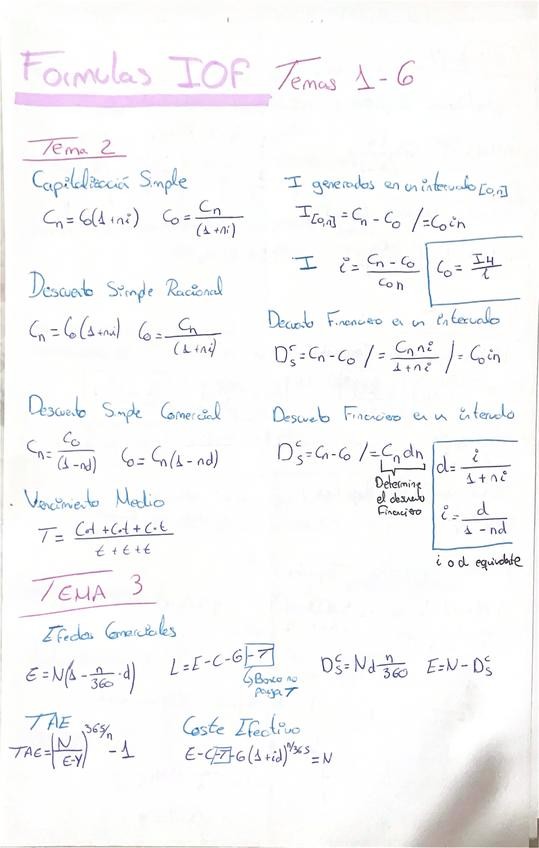 Formulas IOF Temas 1-6
Tema 2
Capitalización Simple
Cn = C0(1+ni) C0 = Cn/(1+ni)
I generados en un intervalo [0,n]
I[0,n] = Cn - C0 /= C0in
I i = Cn - C0/C0n
Descuento Simple Racional
Cn = C0(1+ni) C0 = Cn/(1+ni)
Descuento Financiero en un intervalo
Dsc = Cn - C0 /= Cnni/1+ni /= C0in
Descuento Simple Comercial
Cn = C0/(1-nd) C0 = Cn(1-nd)
Descuento Financiero en un intervalo
Dsc = Cn - C0 /= Cndn
Determine
el descuento
Financiero
d = i/1+ni
i = d/1-nd
i o d equivalente
Vencimiento Medio
T = C·t + C·t + C·t/t+t+t
TEMA 3
Efectos Comerciales
E = N(1 - n/360 · d)
L = E-C-G-T
Banco no
paga T
Dsc = Nd n/360 E = N - Dsc
TAE
TAE = (N/E-Y)^365/n - 1
Coste Efectivo
E-C-T-G(1+id)^n/365 = N